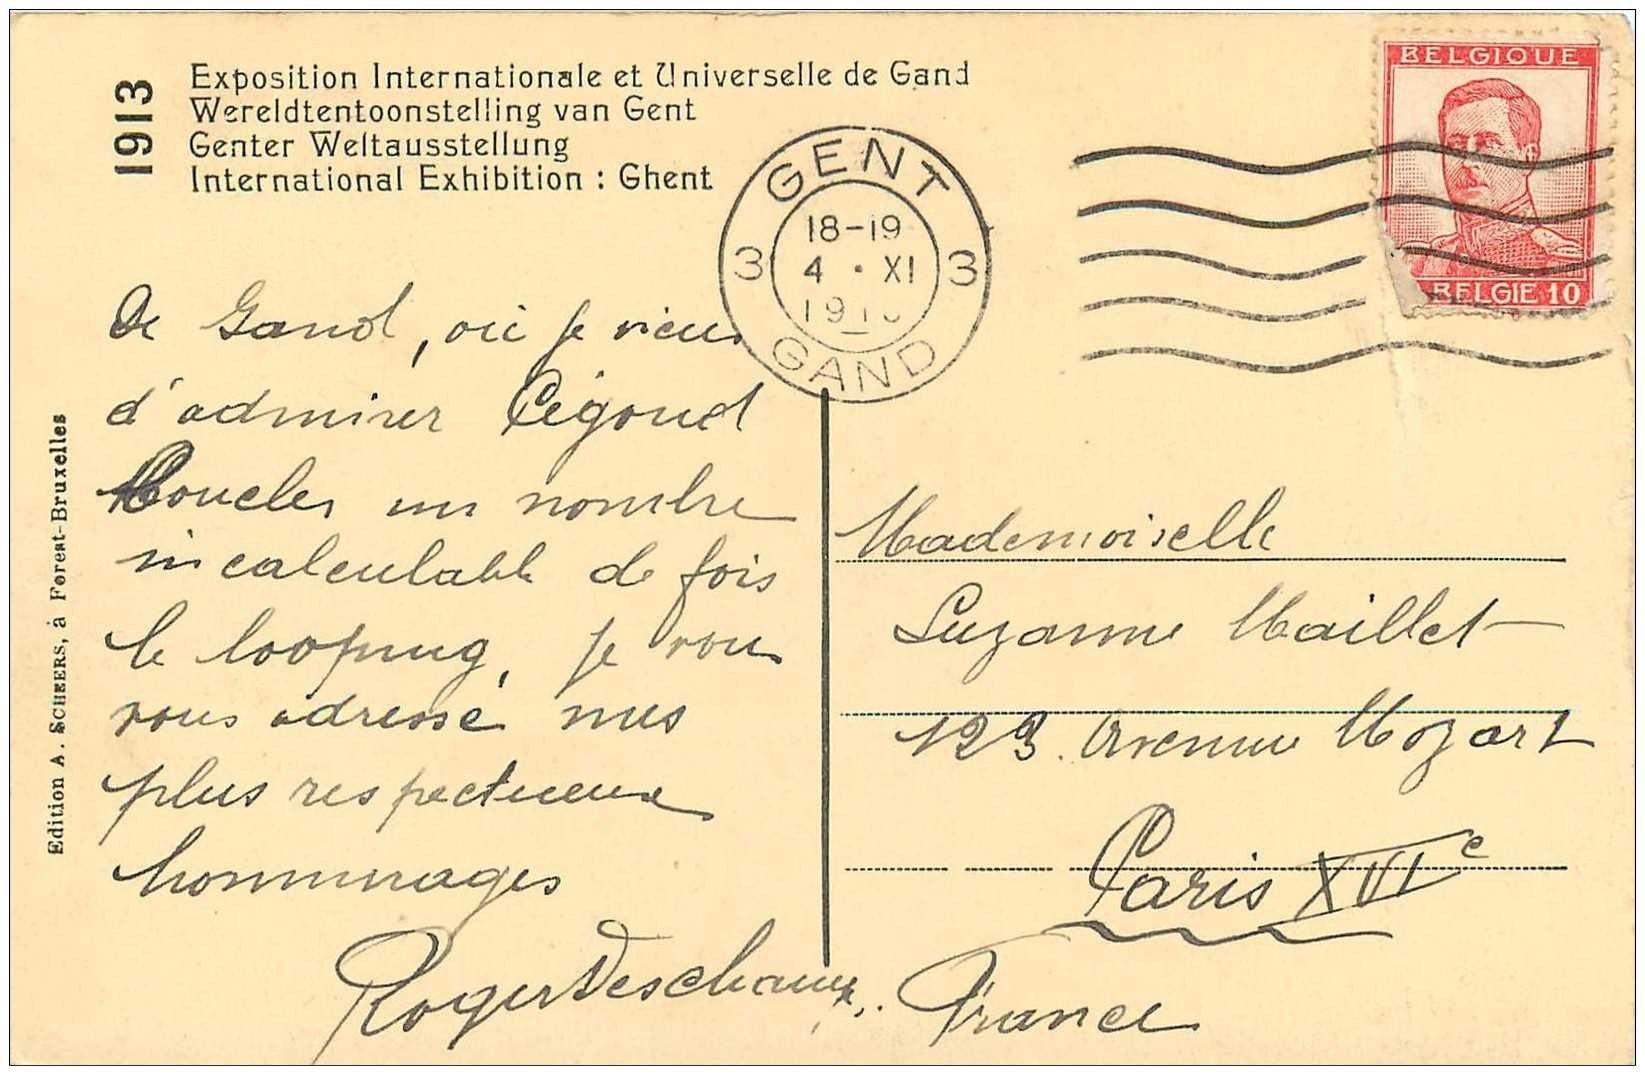 1913
Exposition Internationale et Universelle de Gand
Wereldtentoonstelling van Gent
Genter Weltausstellung
International Exhibition : Ghent
BELGIQUE
BELGIE 10
GENT
18-19
3 4 · XI 3
GAND
De Gand, où je viens
d'admirer Pégoud
Boucler un nombre
incalculable de fois
le looping, je vous
vous adresse mes
plus respectueux
hommages
Roger Deschaux
Edition A. SCHEERS, à Forest-Bruxelles
Mademoiselle
Suzanne Maillet
123. Avenue Mozart
Paris XVIe
France